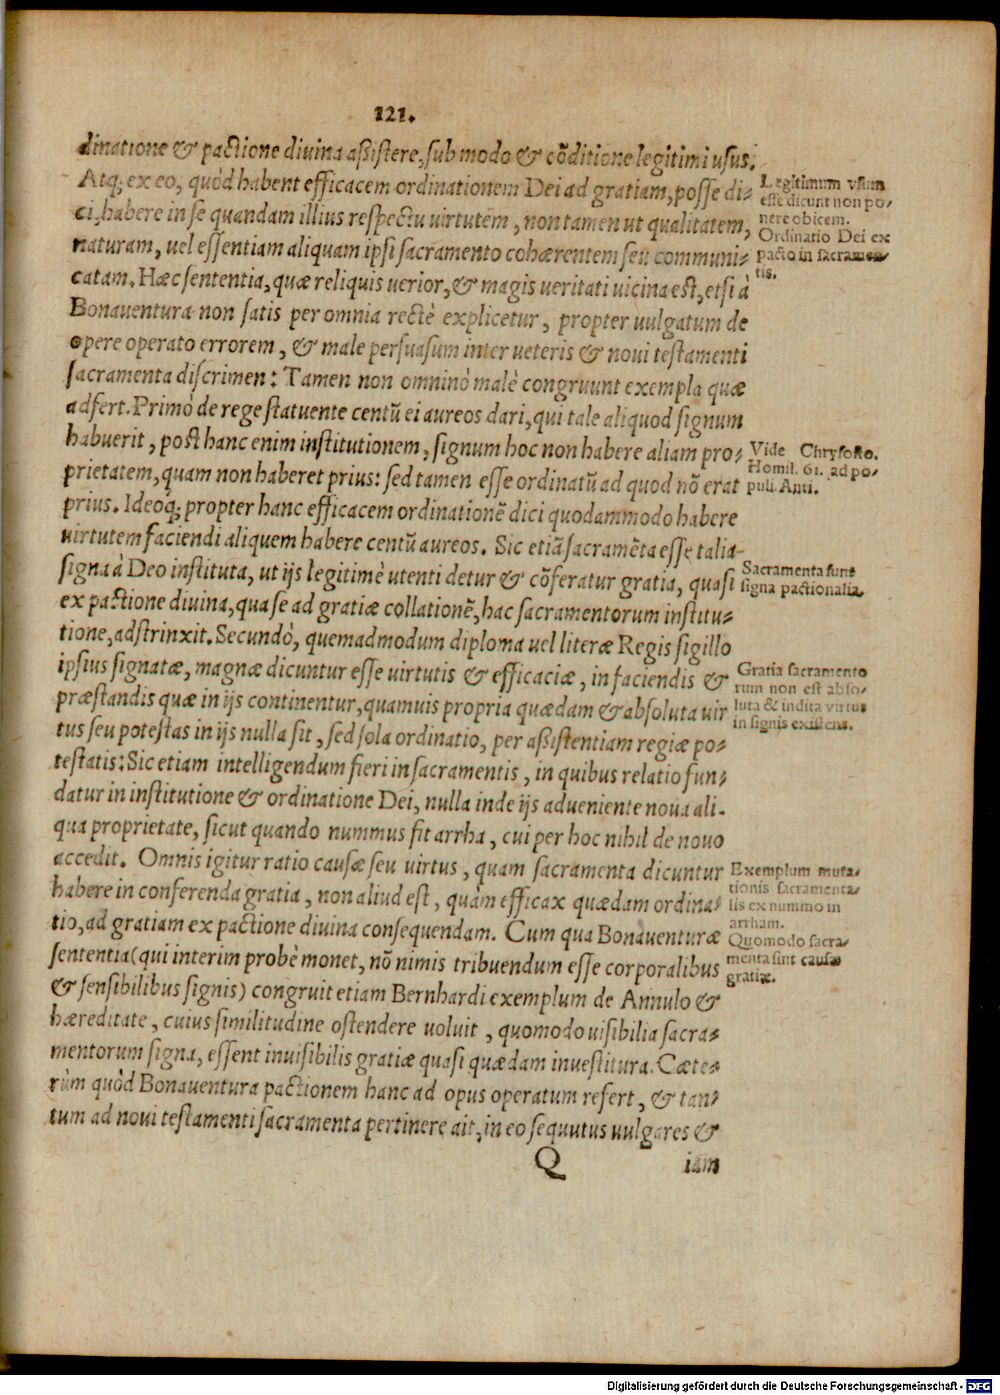 121.
dinatione & pactione divina aßistere, sub modo & cõditione legitimi usus.
Atq; ex eo, quòd habent efficacem ordinationem Dei ad gratiam, posse di-
ci, habere in se quandam illius respectu virtutem, non tamen ut qualitatem,
naturam, uel essentiam aliquam ipsi sacramento cohærentem seu communi-
catam. Hæc sententia, quæ reliquis uerior, & magis ueritati uicina est, etsi à
Bonauentura non satis per omnia rectè explicetur, propter uulgatum de
opere operato errorem, & male persuasum inter ueteris & noui testamenti
sacramenta discrimen: Tamen non omninò malè congruunt exempla quæ
adfert. Primò de rege statuente centũ ei aureos dari, qui tale aliquod signum
habuerit, post hanc enim institutionem, signum hoc non habere aliam pro-
prietatem, quam non haberet prius: sed tamen esse ordinatũ ad quod nõ erat
prius. Ideoq; propter hanc efficacem ordinationẽ dici quodammodo habere
uirtutem faciendi aliquem habere centũ aureos. Sic etiã sacramẽta esse talia
signa à Deo instituta, ut ijs legitimè utenti detur & cõferatur gratia, quasi
ex pactione diuina, qua se ad gratiæ collationẽ, hac sacramentorum institu-
tione, adstrinxit. Secundò, quemadmodum diploma uel literæ Regis sigillo
ipsius signatæ, magnæ dicuntur esse uirtutis & efficaciæ, in faciendis &
præstandis quæ in ijs continentur, quamuis propria quædam & absoluta uir
tus seu potestas in ijs nulla sit, sed sola ordinatio, per aßistentiam regiæ po-
testatis: Sic etiam intelligendum fieri in sacramentis, in quibus relatio fun-
datur in institutione & ordinatione Dei, nulla inde ijs adueniente noua ali-
qua proprietate, sicut quando nummus fit arrha, cui per hoc nihil de nouo
accedit. Omnis igitur ratio causæ seu virtus, quam sacramenta dicuntur
habere in conferenda gratia, non aliud est, quàm efficax quædam ordina-
tio, ad gratiam ex pactione diuina consequendam. Cum qua Bonauenturæ
sententia (qui interim probè monet, nõ nimis tribuendum esse corporalibus
& sensibilibus signis) congruit etiam Bernhardi exemplum de Annulo &
hæreditate, cuius similitudine ostendere uoluit, quomodo uisibilia sacra-
mentorum signa, essent inuisibilis gratiæ quasi quædam inuestitura. Cæte-
rùm quòd Bonauentura pactionem hanc ad opus operatum refert, & tan-
tum ad noui testamenti sacramenta pertinere ait, in eo sequutus uulgares &
Q iam
Legitimum vsum
esse dicunt non po-
nere obicem.
Ordinatio Dei ex
pacto in sacramen-
tis.
Vide Chrysosto.
Homil. 61. ad po-
puli Anti.
Sacramenta sunt
signa pactionalia.
Gratia sacramento
rum non est abso-
luta & indita virtus
in signis existens.
Exemplum muta-
tionis sacramenta-
lis ex nummo in
arrham.
Quomodo sacra-
menta sint causæ
gratiæ.
Digitalisierung gefördert durch die Deutsche Forschungsgemeinschaft - DFG